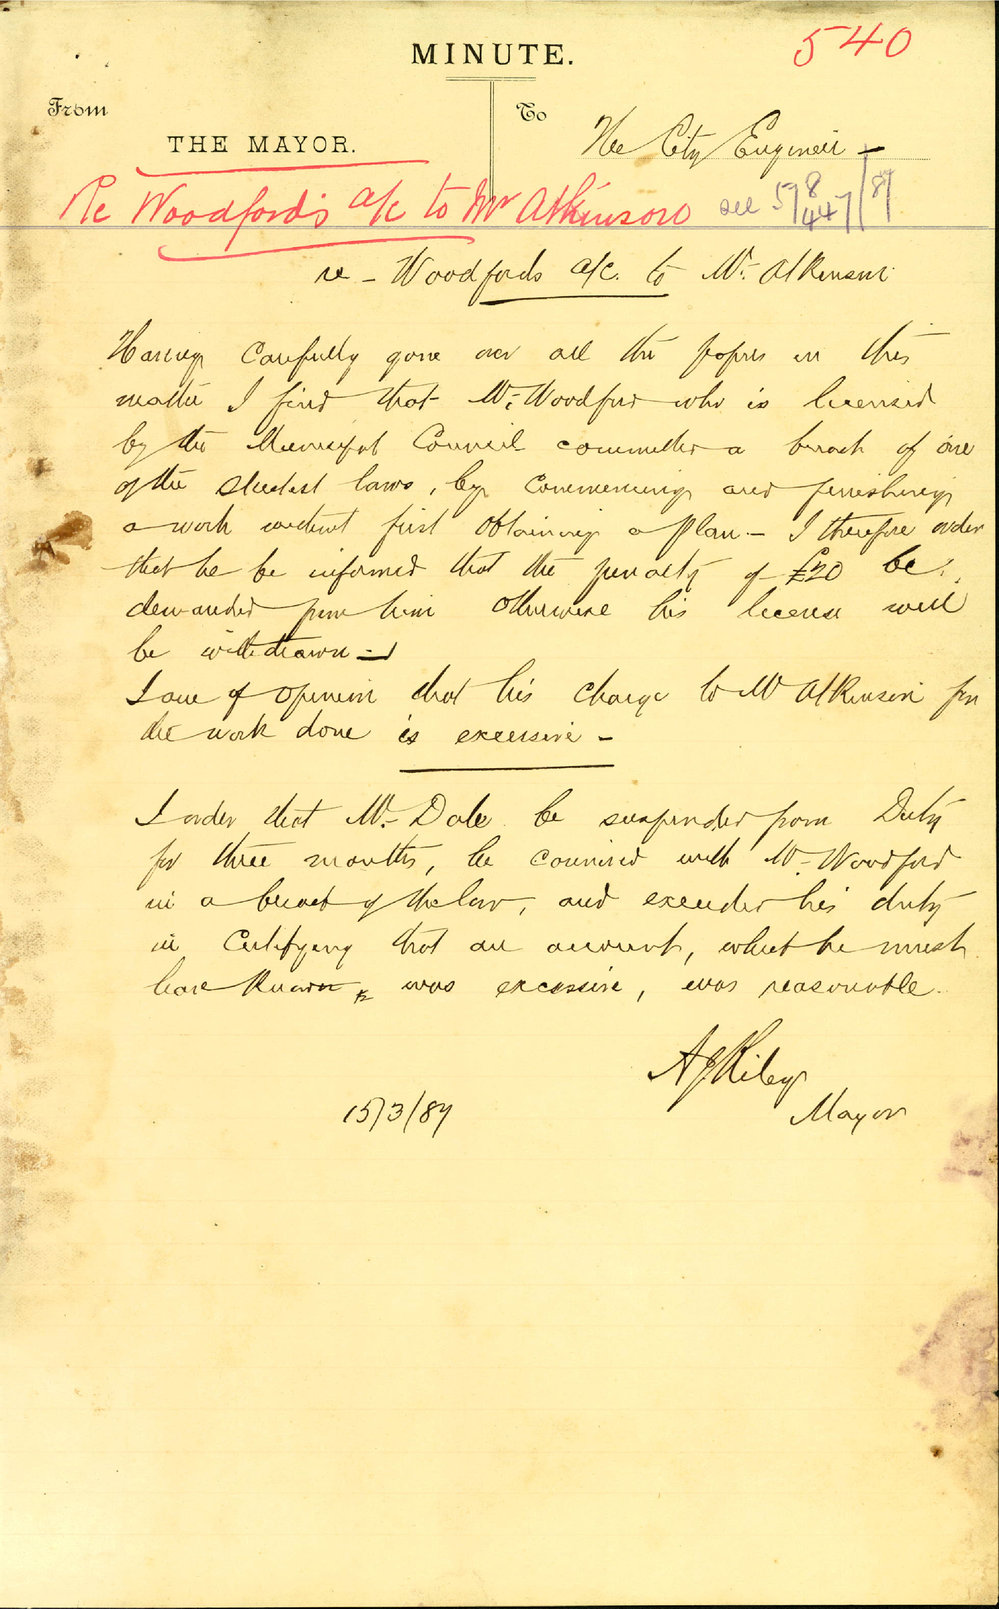 540
MINUTE.
From
To
THE MAYOR.
The City Engineer -
Re Woodford's a/c to Mr Atkinson
see 5/8 447/87
re - Woodfords a/c. to Mr. Atkinson
Having carefully gone over all the papers in this
matter I find that Mr. Woodford who is licensed
by the Municipal Council committed a breach of one
of the strictest laws, by commencing and finishing
a work without first obtaining a plan - I therefore order
that he be informed that the penalty of £20 be
demanded from him otherwise his license will
be withdrawn -
I am of opinion that his charge to Mr Atkinson for
the work done is excessive -
I order that Mr. Dale be suspended from Duty
for three months, he connived with Mr. Woodford
in a breach of the law, and exceeded his duty
in certifying that an account, what he must
have known was excessive, was reasonable.
AJ Riley
Mayor
15/3/87